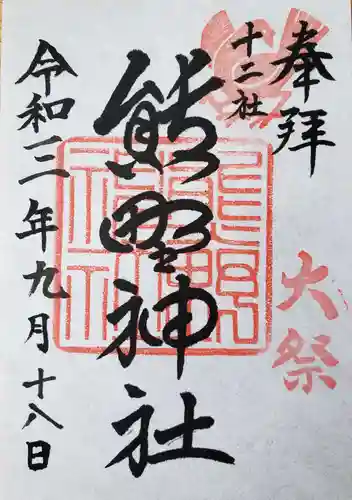 奉拝
十二社
大祭
熊野神社
令和三年九月十八日